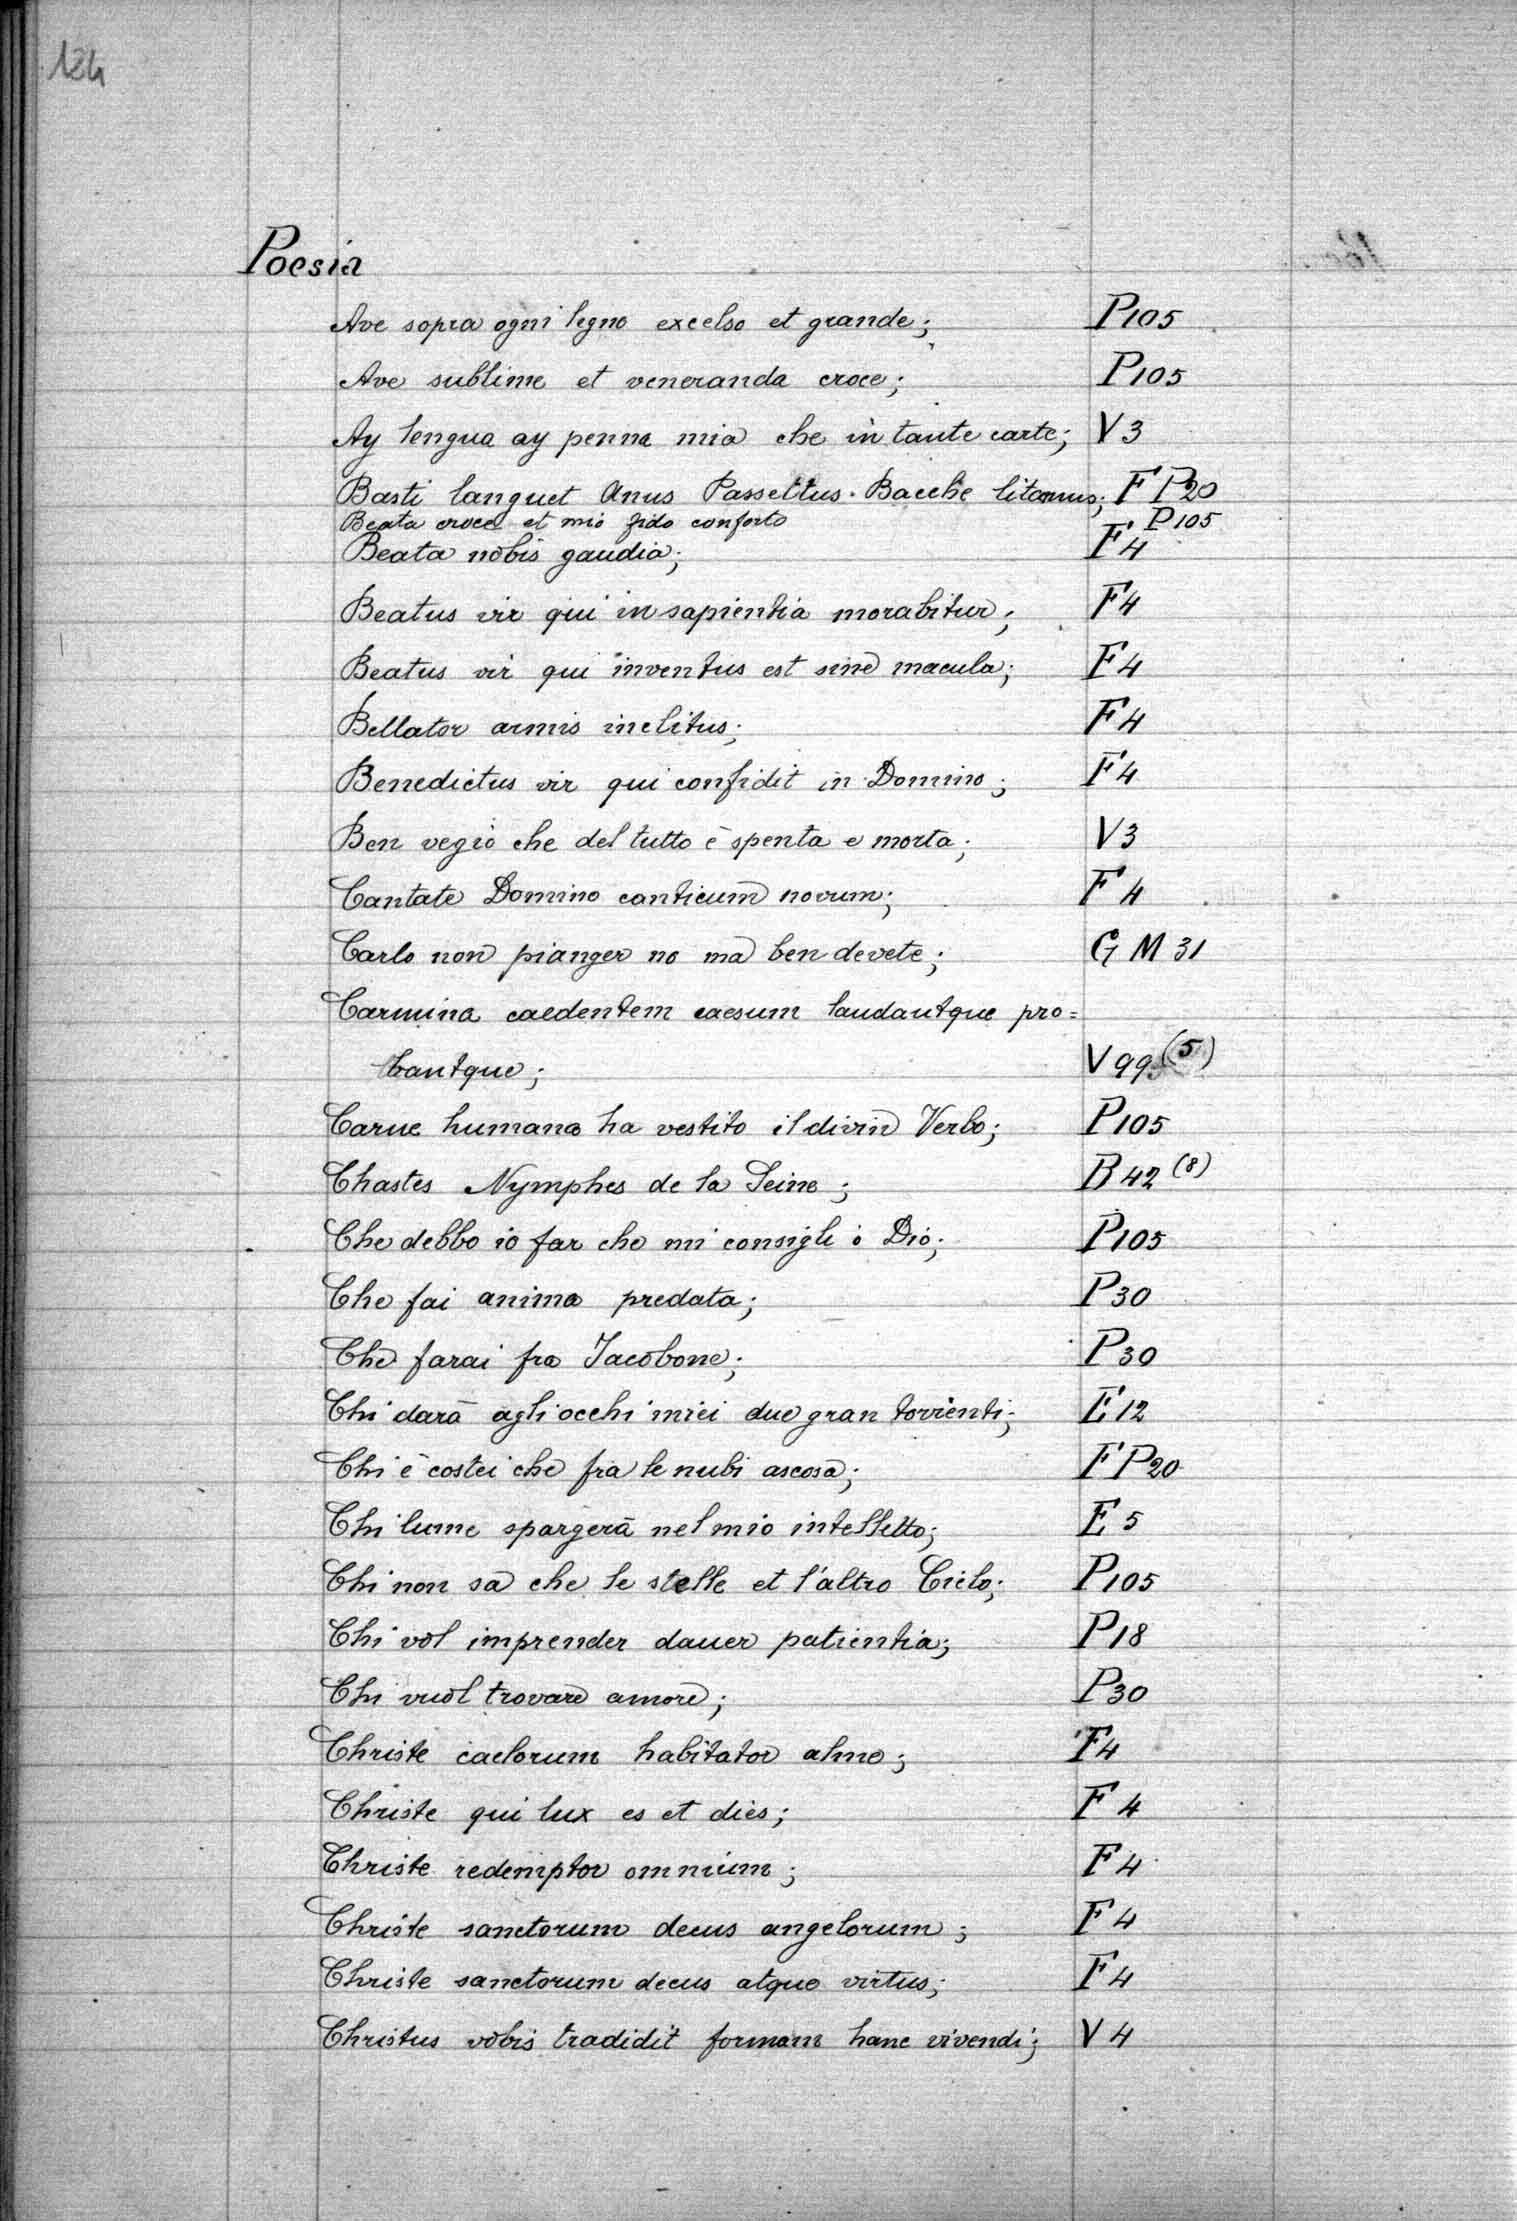 124
Poesia
Ave sopra ogni legno excelso et grande; P105
Ave sublime et veneranda croce; P105
Ay lengua ay penna mia che in tante carte; V 3
Basti languet Anus Passettus. Bacche litamus; F P20
Beata croce et mio fido conforto P105
Beata nobis gaudia; F 4
Beatus vir qui in sapientia morabitur; F 4
Beatus vir qui inventus est sine macula; F 4
Bellator armis inclitus; F 4
Benedictus vir qui confidit in Domino; F 4
Ben vegio che del tutto è spenta e morta; V 3
Cantate Domino canticum novum; F 4
Carlo non pianger no ma ben devete; G M 31
Carmina caedentem caesum laudantque pro=
bantque; V 99 (5)
Carne humana ha vestito il divin Verbo; P105
Chastes Nymphes de la Seine; B 42 (8)
Che debbo io far che mi consigli o Dio; P105
Che fai anima predata; P30
Che farai fra Jacobone; P30
Chi darà agli occhi miei due gran torrienti; E 12
Chi è costei che fra le nubi ascosa; F P20
Chi lume spargerà nel mio intelletto; E 5
Chi non sa che le stelle et l'altro Cielo; P105
Chi vol imprender dauer patientia; P18
Chi vuol trovare amore; P30
Christe caelorum habitator alme; F 4
Christe qui lux es et dies; F 4
Christe redemptor omnium; F 4
Christe sanctorum decus angelorum; F 4
Christe sanctorum decus atque virtus; F 4
Christus vobis tradidit formam hanc vivendi; V 4